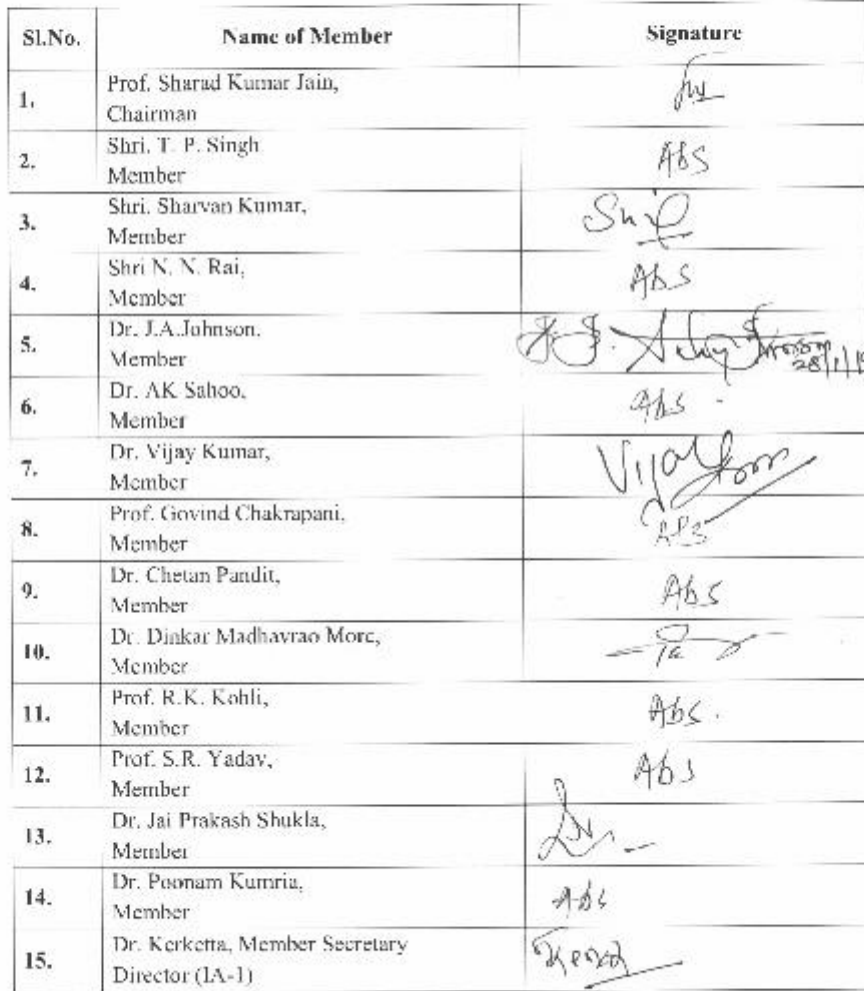 Sl.No. Name of Member Signature
1. Prof. Sharad Kumar Jain,
Chairman
2. Shri. T. P. Singh Abs
Member
3. Shri. Sharvan Kumar,
Member
4. Shri N. N. Rai, Abs
Member
5. Dr. J.A.Johnson.
Member
28/1/19
6. Dr. AK Sahoo, Abs
Member
7. Dr. Vijay Kumar, Vijay
Member
8. Prof. Govind Chakrapani, Abs
Member
9. Dr. Chetan Pandit, Abs
Member
10. Dr. Dinkar Madhavrao More,
Member
11. Prof. R.K. Kohli, Abs.
Member
12. Prof. S.R. Yadav, Abs
Member
13. Dr. Jai Prakash Shukla,
Member
14. Dr. Poonam Kumria, Abs
Member
15. Dr. Kerketta, Member Secretary
Director (IA-1)